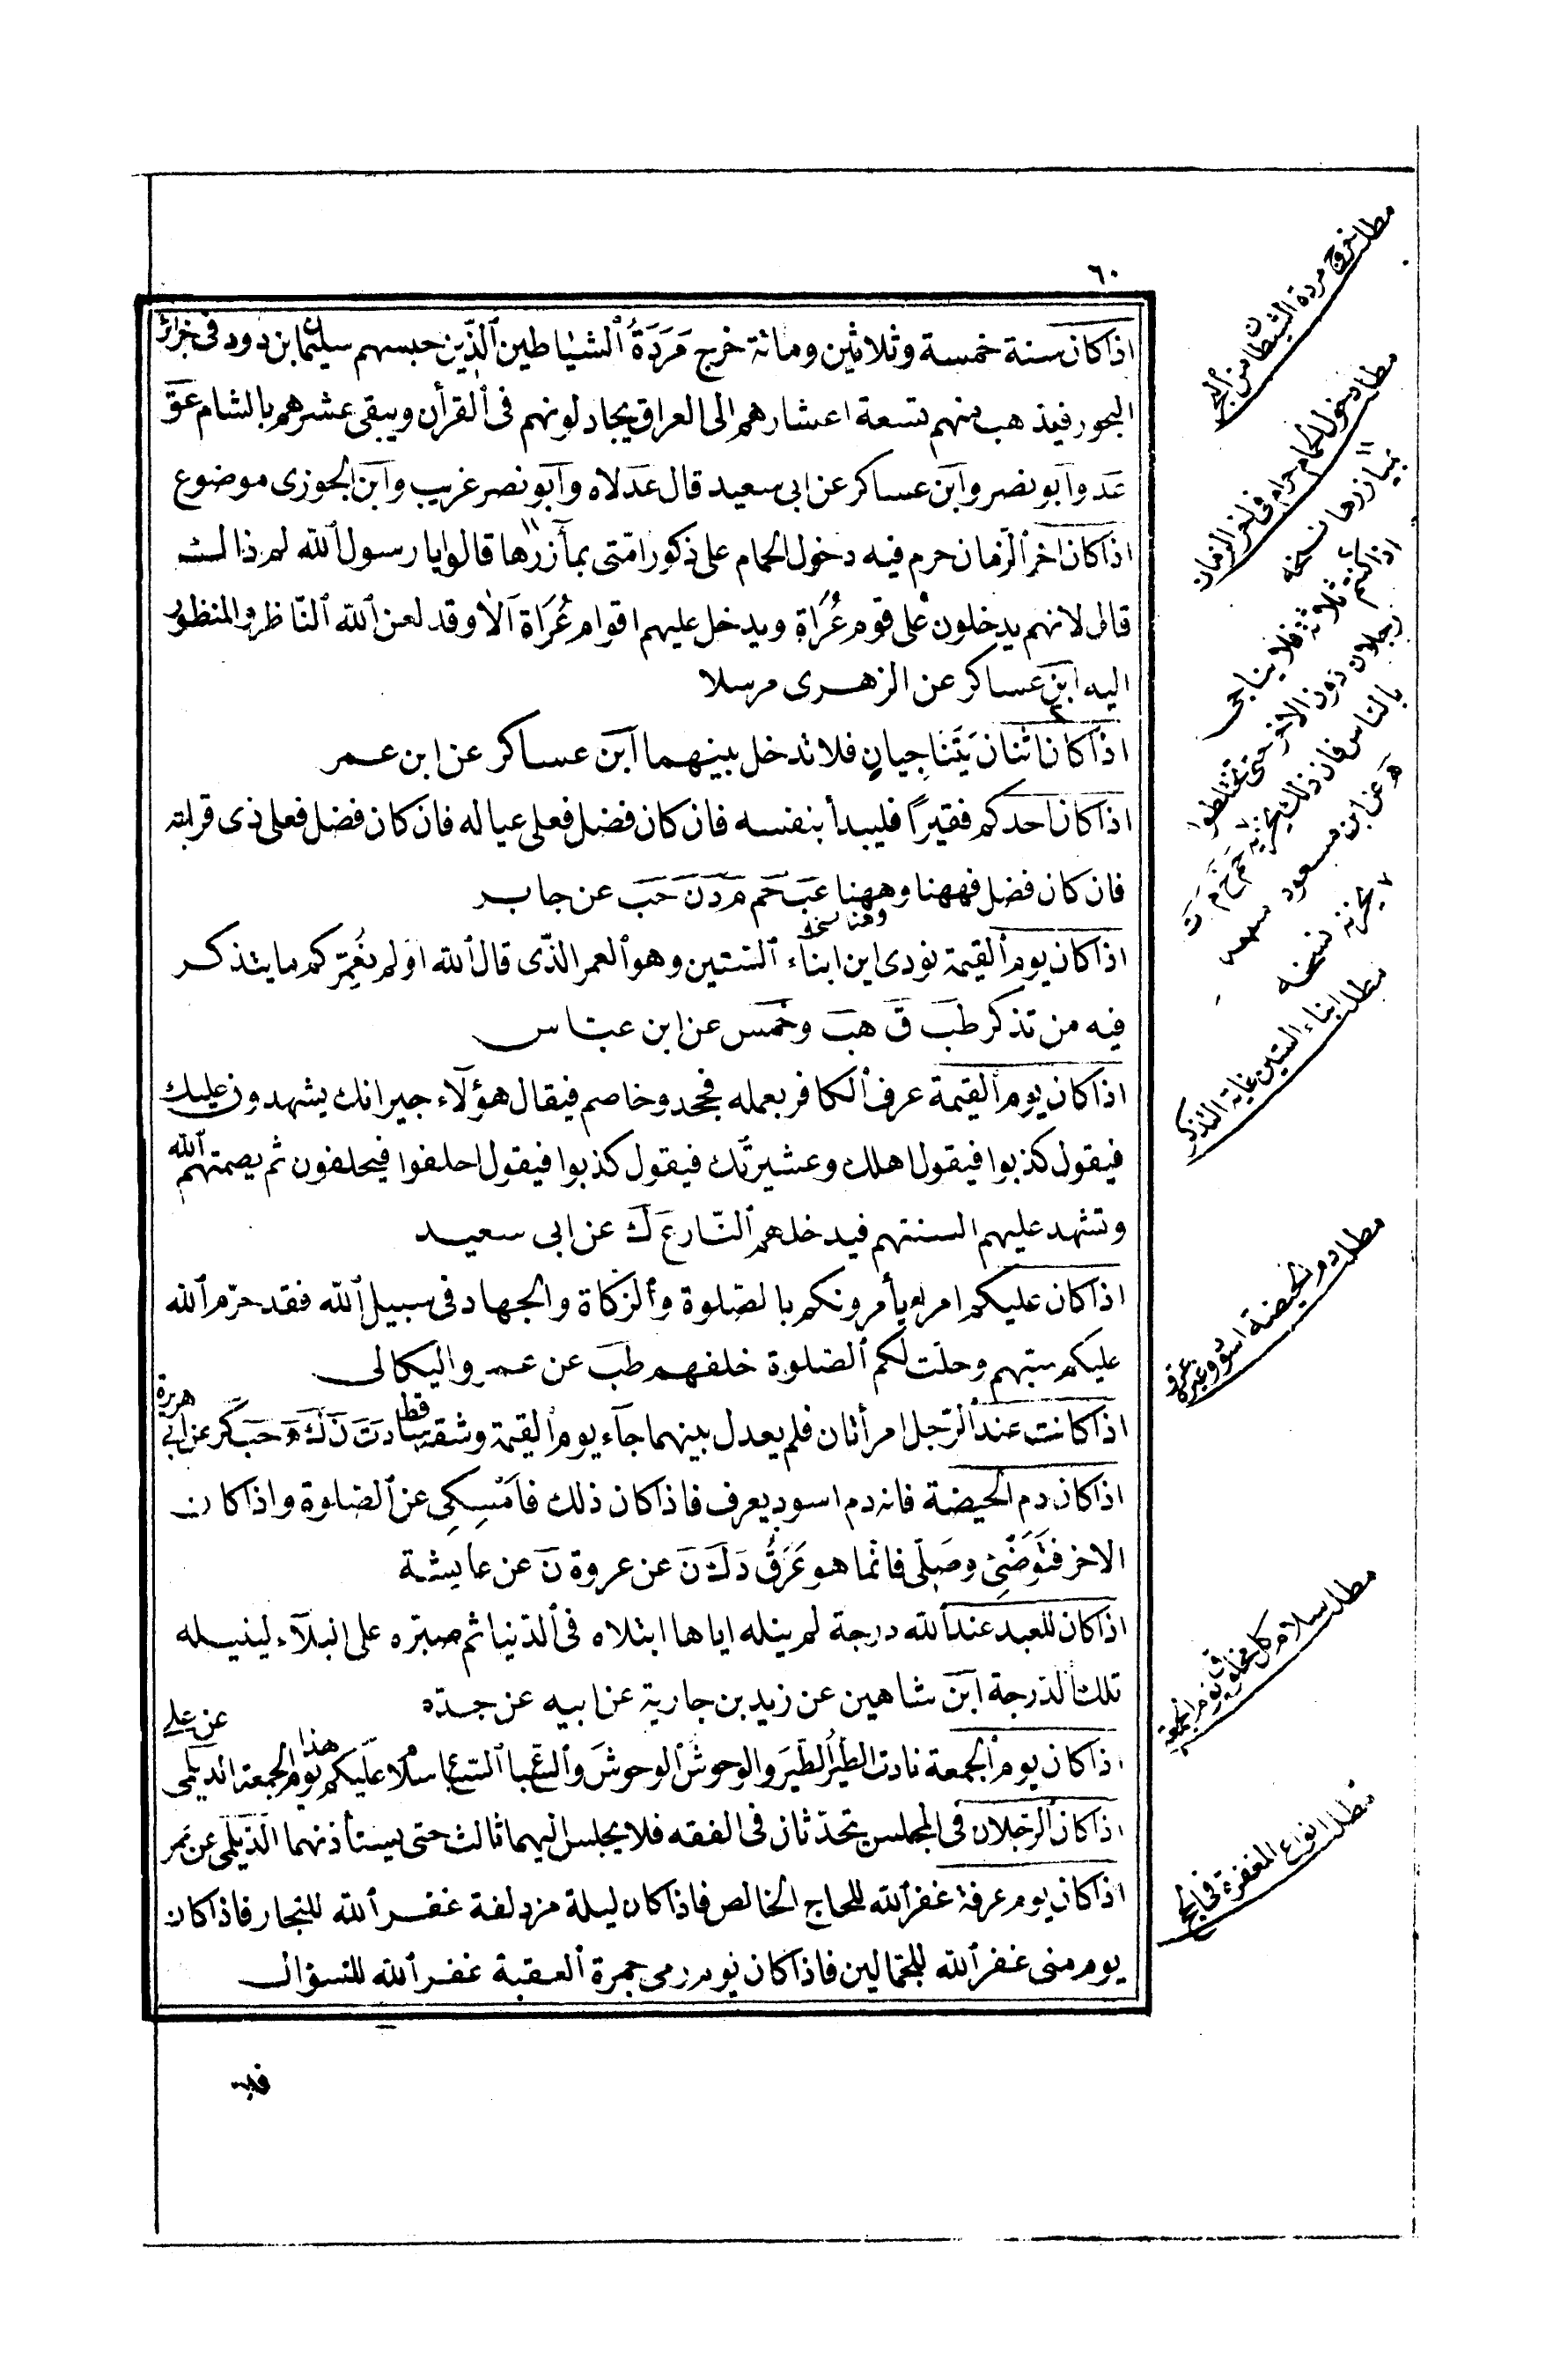 ٦٠
اذا كان سنة خمسة وثلاثين ومائة خرج مَرَدَةُ الشياطين الذين حبسهم سليمان ابن دود فى جزائر
البحور فيذهب منهم تسعة اعشارهم الى العراق يجادلونهم فى القرأن ويبقى عشرهم بالشام عق
عد وابو نصر وابن عساكر عن ابى سعيد قال عد لاه وابو نصر غريب وابن الجوزى موضوع
اذا كان اخر الزمان حرم فيه دخول الحمام على ذكور امتى بمأزرها قالوا يا رسول الله لم ذالك
قال لانهم يدخلون على قوم عُرَاة ويدخل عليهم اقوام عُرَاة الا وقد لعن الله الناظر والمنظور
اليه ابن عساكر عن الزهرى مرسلا
اذا كان اثنان يَتَنَاجيان فلا تدخل بينهما ابن عساكر عن ابن عمر
اذا كان احدكم فقيرًا فليبدأ بنفسه فان كان فضل فعلى عياله فان كان فضل فعلى ذى قرابته
فان كان فضل فههنا وههنا عب حم م د ن حب عن جابر
وهنا نسخه
اذا كان يوم القيمة نودى اين ابناء الستين وهو العمر الذى قال الله اولم نُعَمِّركم ما يتذكر
فيه من تذكر طب ق هب وخمس عن ابن عباس
اذا كان يوم القيمة عرف الكافر بعمله فجحد وخاصم فيقال هؤلآء جيرانك يشهدون عليك
فيقول كذبوا فيقول اهلك وعشيرتك فيقول كذبوا فيقول احلفوا فيحلفون ثم يصمتهم الله
وتشهد عليهم السنتهم فيدخلهم النار ع ك عن ابى سعيد
اذا كان عليكم امراء يأمرونكم بالصلوة والزكاة والجهاد فى سبيل الله فقد حرّم الله
عليكم سبهم وحلت لكم الصلوة خلفهم طب عن عمرو البكالى
اذا كانت عند الرّجل امرأتان فلم يعدل بينهما جآء يوم القيمة وشقه ساقط د ت ن ك ه حب كر عن ابى هريرة
اذا كان دم الحيضة فانه دم اسود يعرف فاذا كان ذلك فاَمْسِكِى عن الصلوة واذا كان
الاخر فتَوَضَّئِى وصَلِّى فانّما هو عَرَقٌ د ك ن عن عروة ن عن عايشة
اذا كان للعبد عند الله درجة لم ينله اياها ابتلاه فى الدنيا ثم صبّره على البلآء لينيله
تلك الدرجة ابن شاهين عن زيد بن جارية عن ابيه عن جده
اذا كان يوم الجمعة نادت الطيرُ الطيرَ والوحوشُ الوحوشَ والسباع السباع سلام عليكم هذا يوم الجمعة الديلمى عن على
اذا كان الرّجلان فى المجلس يتحدّثان فى الفقه فلا يجلس اليهما ثالث حتى يستأذنهما الديلمى عن عمر
اذا كان يوم عرفة غفر الله للحاج الخالص فاذا كان ليلة مزدلفة غفر الله للتجار فاذا كان
يوم منى غفر الله للجمالين فاذا كان يوم رمى جمرة العقبة غفر الله للسؤال
مطلب خروج مردة الشيطان من البحر
مطلب دخول الحمام حرام فى اخر الزمان
بميازرها نسخه
اذا كنتم ثلاثة فلا يتناجى
رجلان دون الاخر حتى تختلطوا
بالناس فان ذلك يحزنه حم خ م ت
ه عن ابن مسعود
يحزنه نسخه
مطلب ابناء الستين غاية التذكر
مطلب دم الحيضة اسود وغيره عرق
مطلب سلام كل مخلوق يوم الجمعة
مطلب انواع المغفرة فى الحج